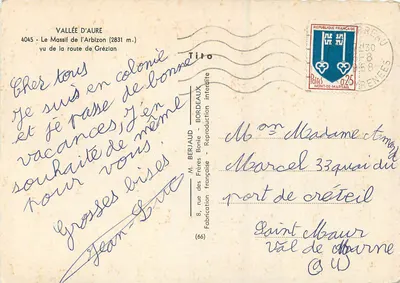 VALLÉE D'AURE
4045 - Le Massif de l'Arbizon (2831 m.)
vu de la route de Grézian
Tito
Cher tous
Je suis en colonie
et je passe de bonne
vacances, J'en
souhaite de même
pour vous.
Grosses bises
Jean-Luc
M. BERJAUD
8, rue des Frères Bonie - BORDEAUX
Fabrication française - Reproduction interdite
(66)
REPUBLIQUE FRANÇAISE
POSTES 0,25
MONT-DE-MARSAN
PYRENEES
Mon Madame
Marcel 33 quai du
port de créteil
Saint Maur
Val de Marne